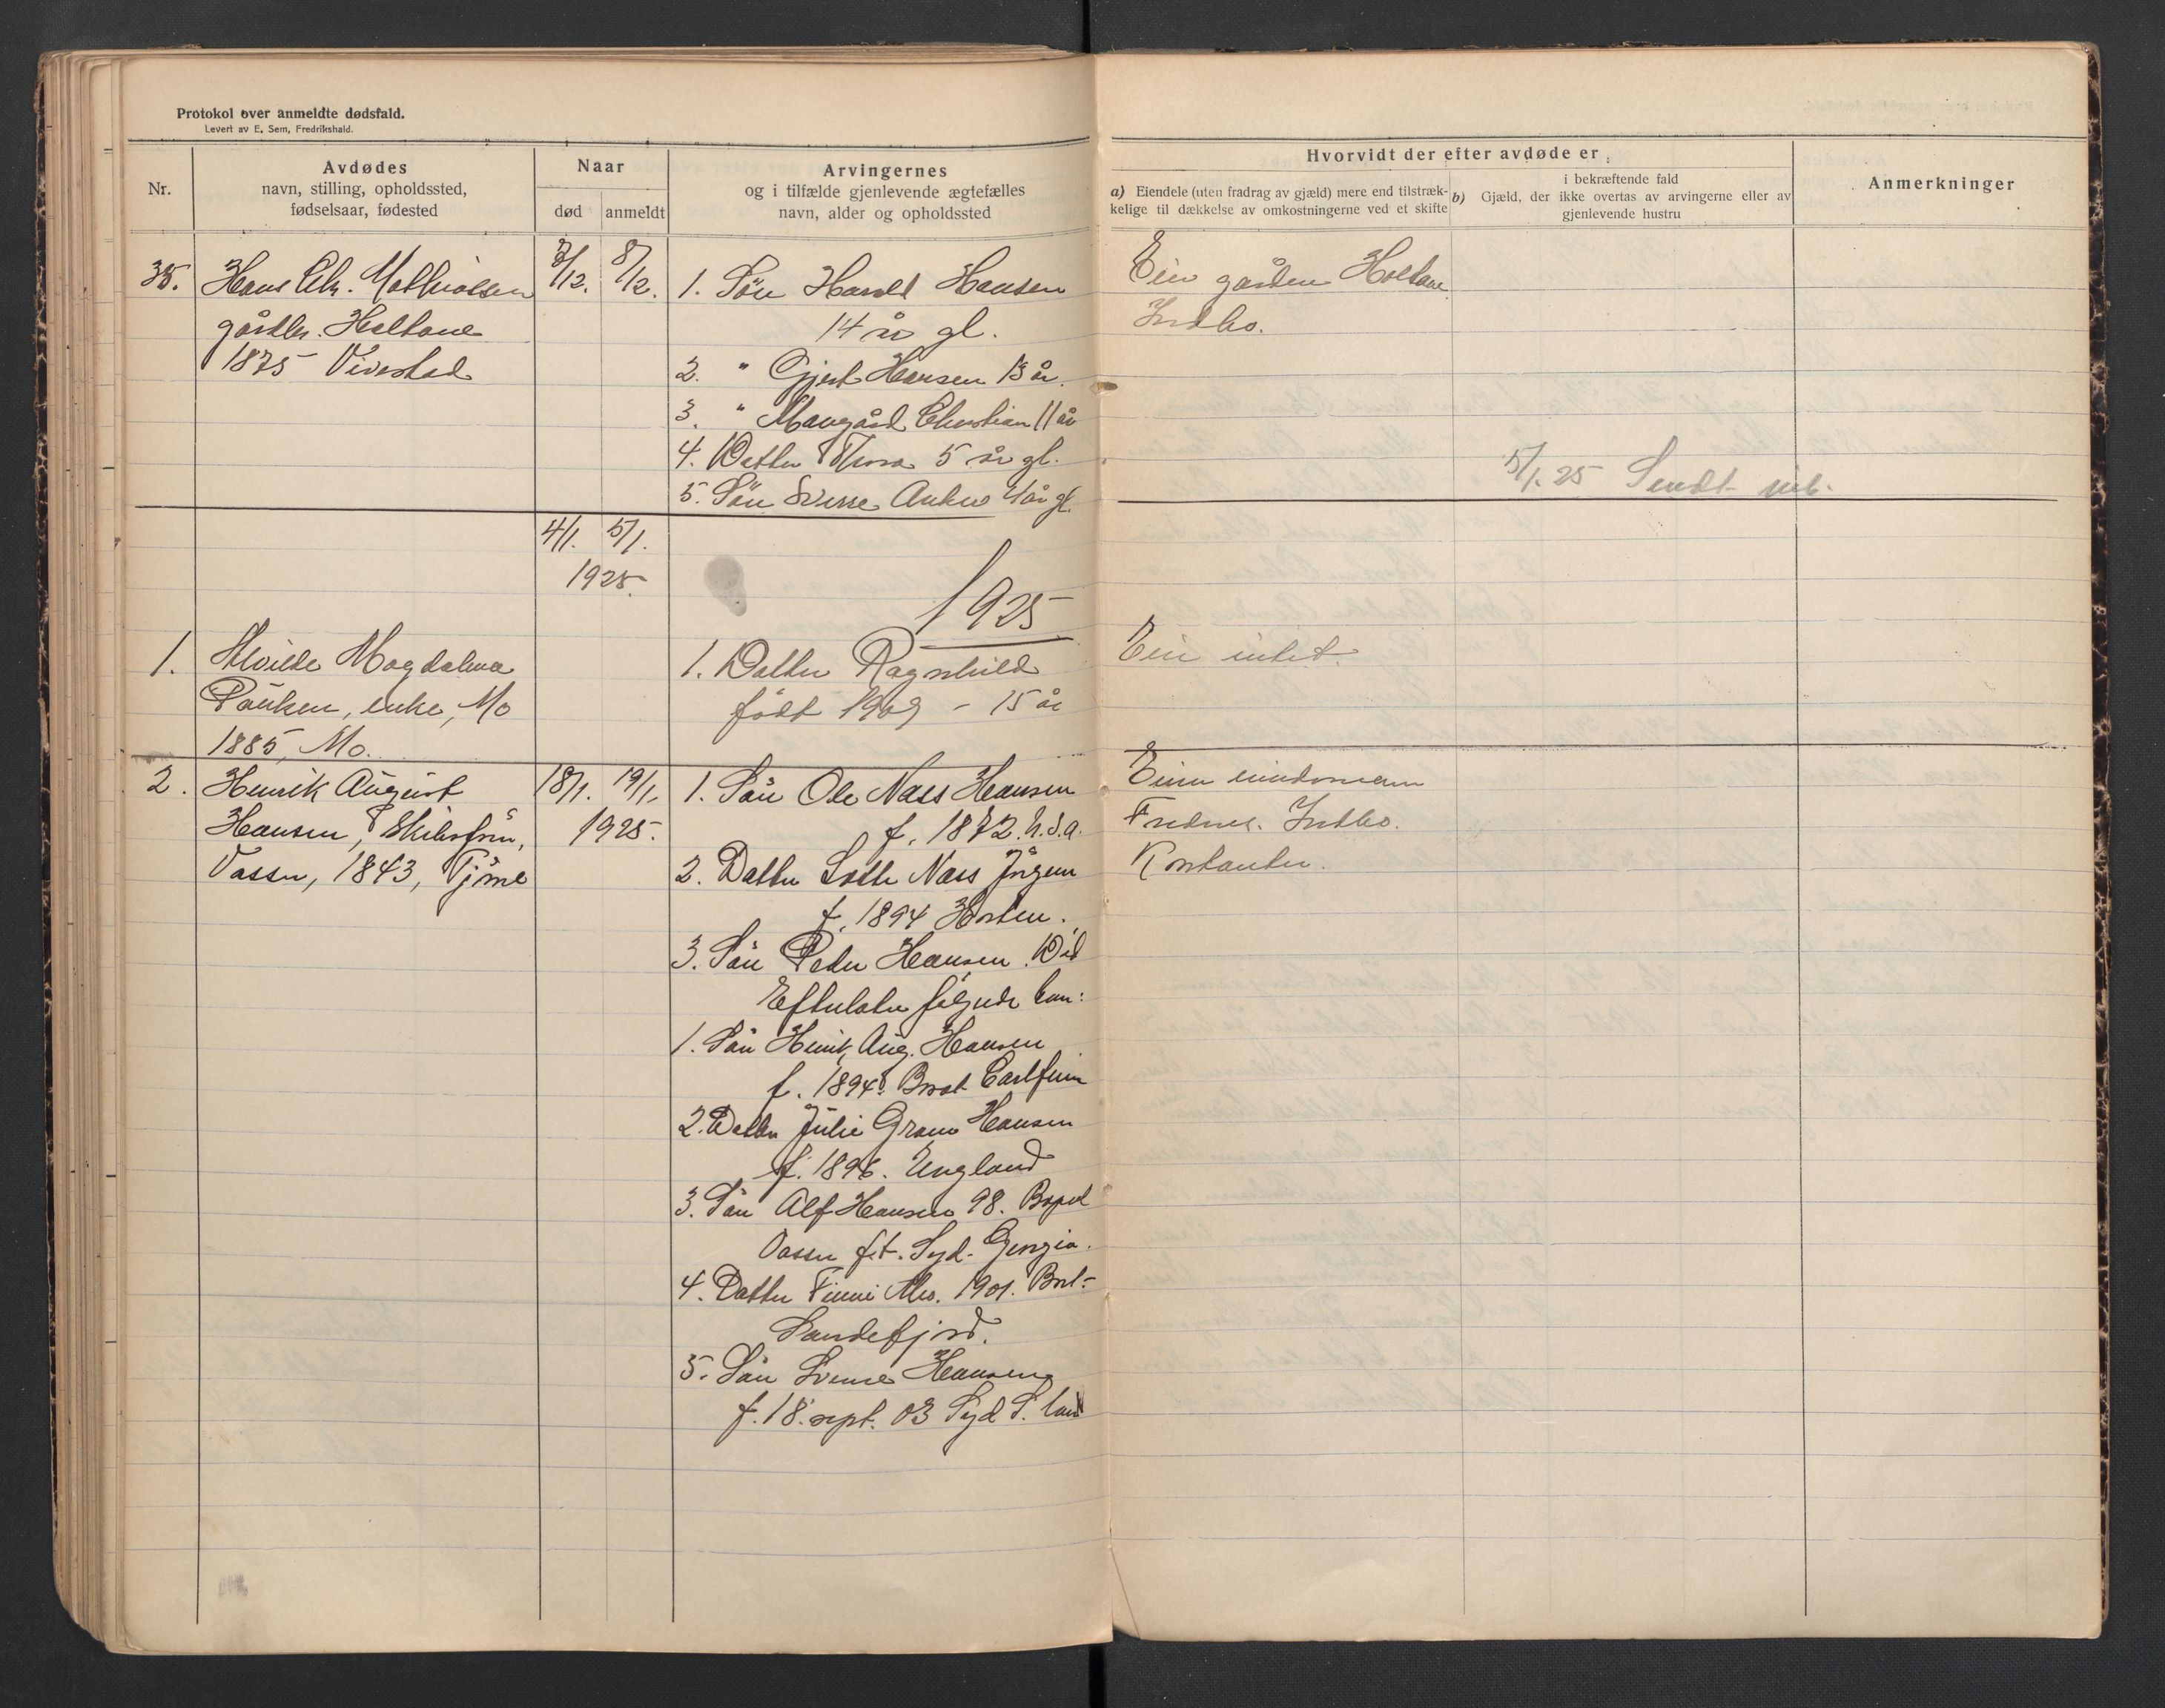 Protokol over anmeldte dødsfald.
Levert av E. Sem, Fredrikshald.
Nr.
Avdødes
navn, stilling, opholdssted,
fødselsaar, fødested
Naar
død
anmeldt
Arvingernes
og i tilfælde gjenlevende ægtefælles
navn, alder og opholdssted
Hvorvidt der efter avdøde er
a) Eiendele (uten fradrag av gjæld) mere end tilstræk-
kelige til dækkelse av omkostningerne ved et skifte
i bekræftende fald
b) Gjæld, der ikke overtas av arvingerne eller av
gjenlevende hustru
Anmerkninger
35.
Hans Chr. Mathiassen
gårdbr. Holtane
1875 Vivestad
3/12. 8/12.
1. Sön Harald Hansen
14 år gl.
2. " Gjert Hansen 13 år.
3. " Mangård Christian 11 år
4. Datter Thora 5 år gl.
5. Sön Sverre Anker 4 år gl.
Eier gården Holtane
Indbo.
5/1.25 Sendt
4/1. 5/1.
1925.
1925
1.
Alvilde Magdalena
Paulsen, enke, Mo
1885, Mo.
1. Datter Ragnhild
född 1909 - 15 år
Eier intet.
2.
Henrik August
Hansen, Skibsförer,
Vasser, 1843, Tjöme
18/1. 19/1.
1925.
1. Sön Ole Nass Hansen
f. 1872. U.S.A.
2. Datter Lotte Nass Jörgensen
f. 1894 Horten.
3. Sön Peder Hansen. Död
Efterlater fölgende barn:
1. Sön Henrik Aug. Hansen
f. 1894. Carlfinn
2. Datter Julie Gram Hansen
f. 1896. England
3. Sön Alf Hansen 98. Bopel
Vassen fvt. Syd-Georgia.
4. Datter Finni 1901. Bost-
Sandefjord.
5. Sön Sverre Hansen
f. 18. sept. 03 Syd S. land
Eier eiendommen
Frednes. Indbo.
Kontanter.